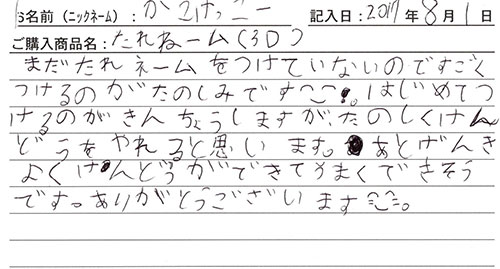 お名前(ニックネーム):かえけっこー 記入日:2017年8月1日
ご購入商品名:たれねーム(3D)
まだたれネームをつけていないのですごく
つけるのがたのしみです^_^!。はじめてつ
けるのがきんちょうしますが、たのしくけん
どうをやれると思います。あとげんき
よくけんどうができてうまくできそう
です。ありがとうございます^_^。